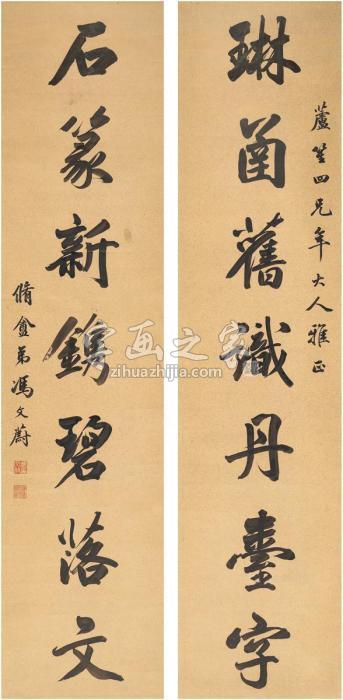 蘆笙四兄年大人雅正
琳菌舊識丹臺字
石篆新鐫碧落文
脩盦弟馮文蔚
字画之家
zihuazhijia.com